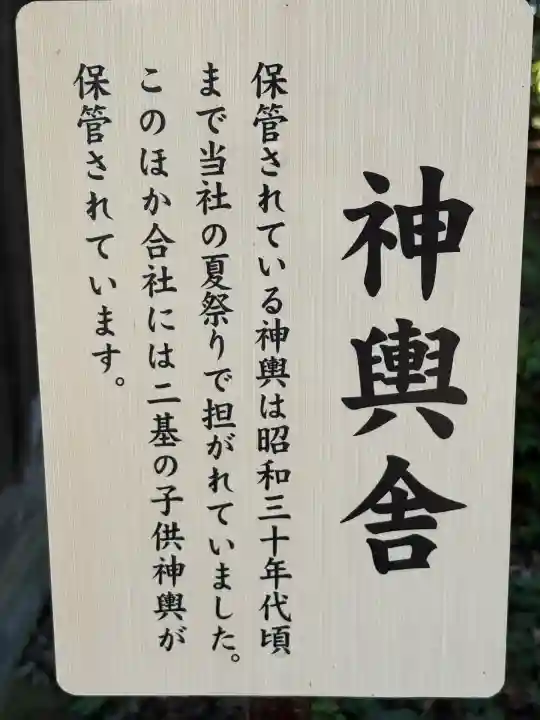 神輿舎
保管されている神輿は昭和三十年代頃
まで当社の夏祭りで担がれていました。
このほか合社には二基の子供神輿が
保管されています。